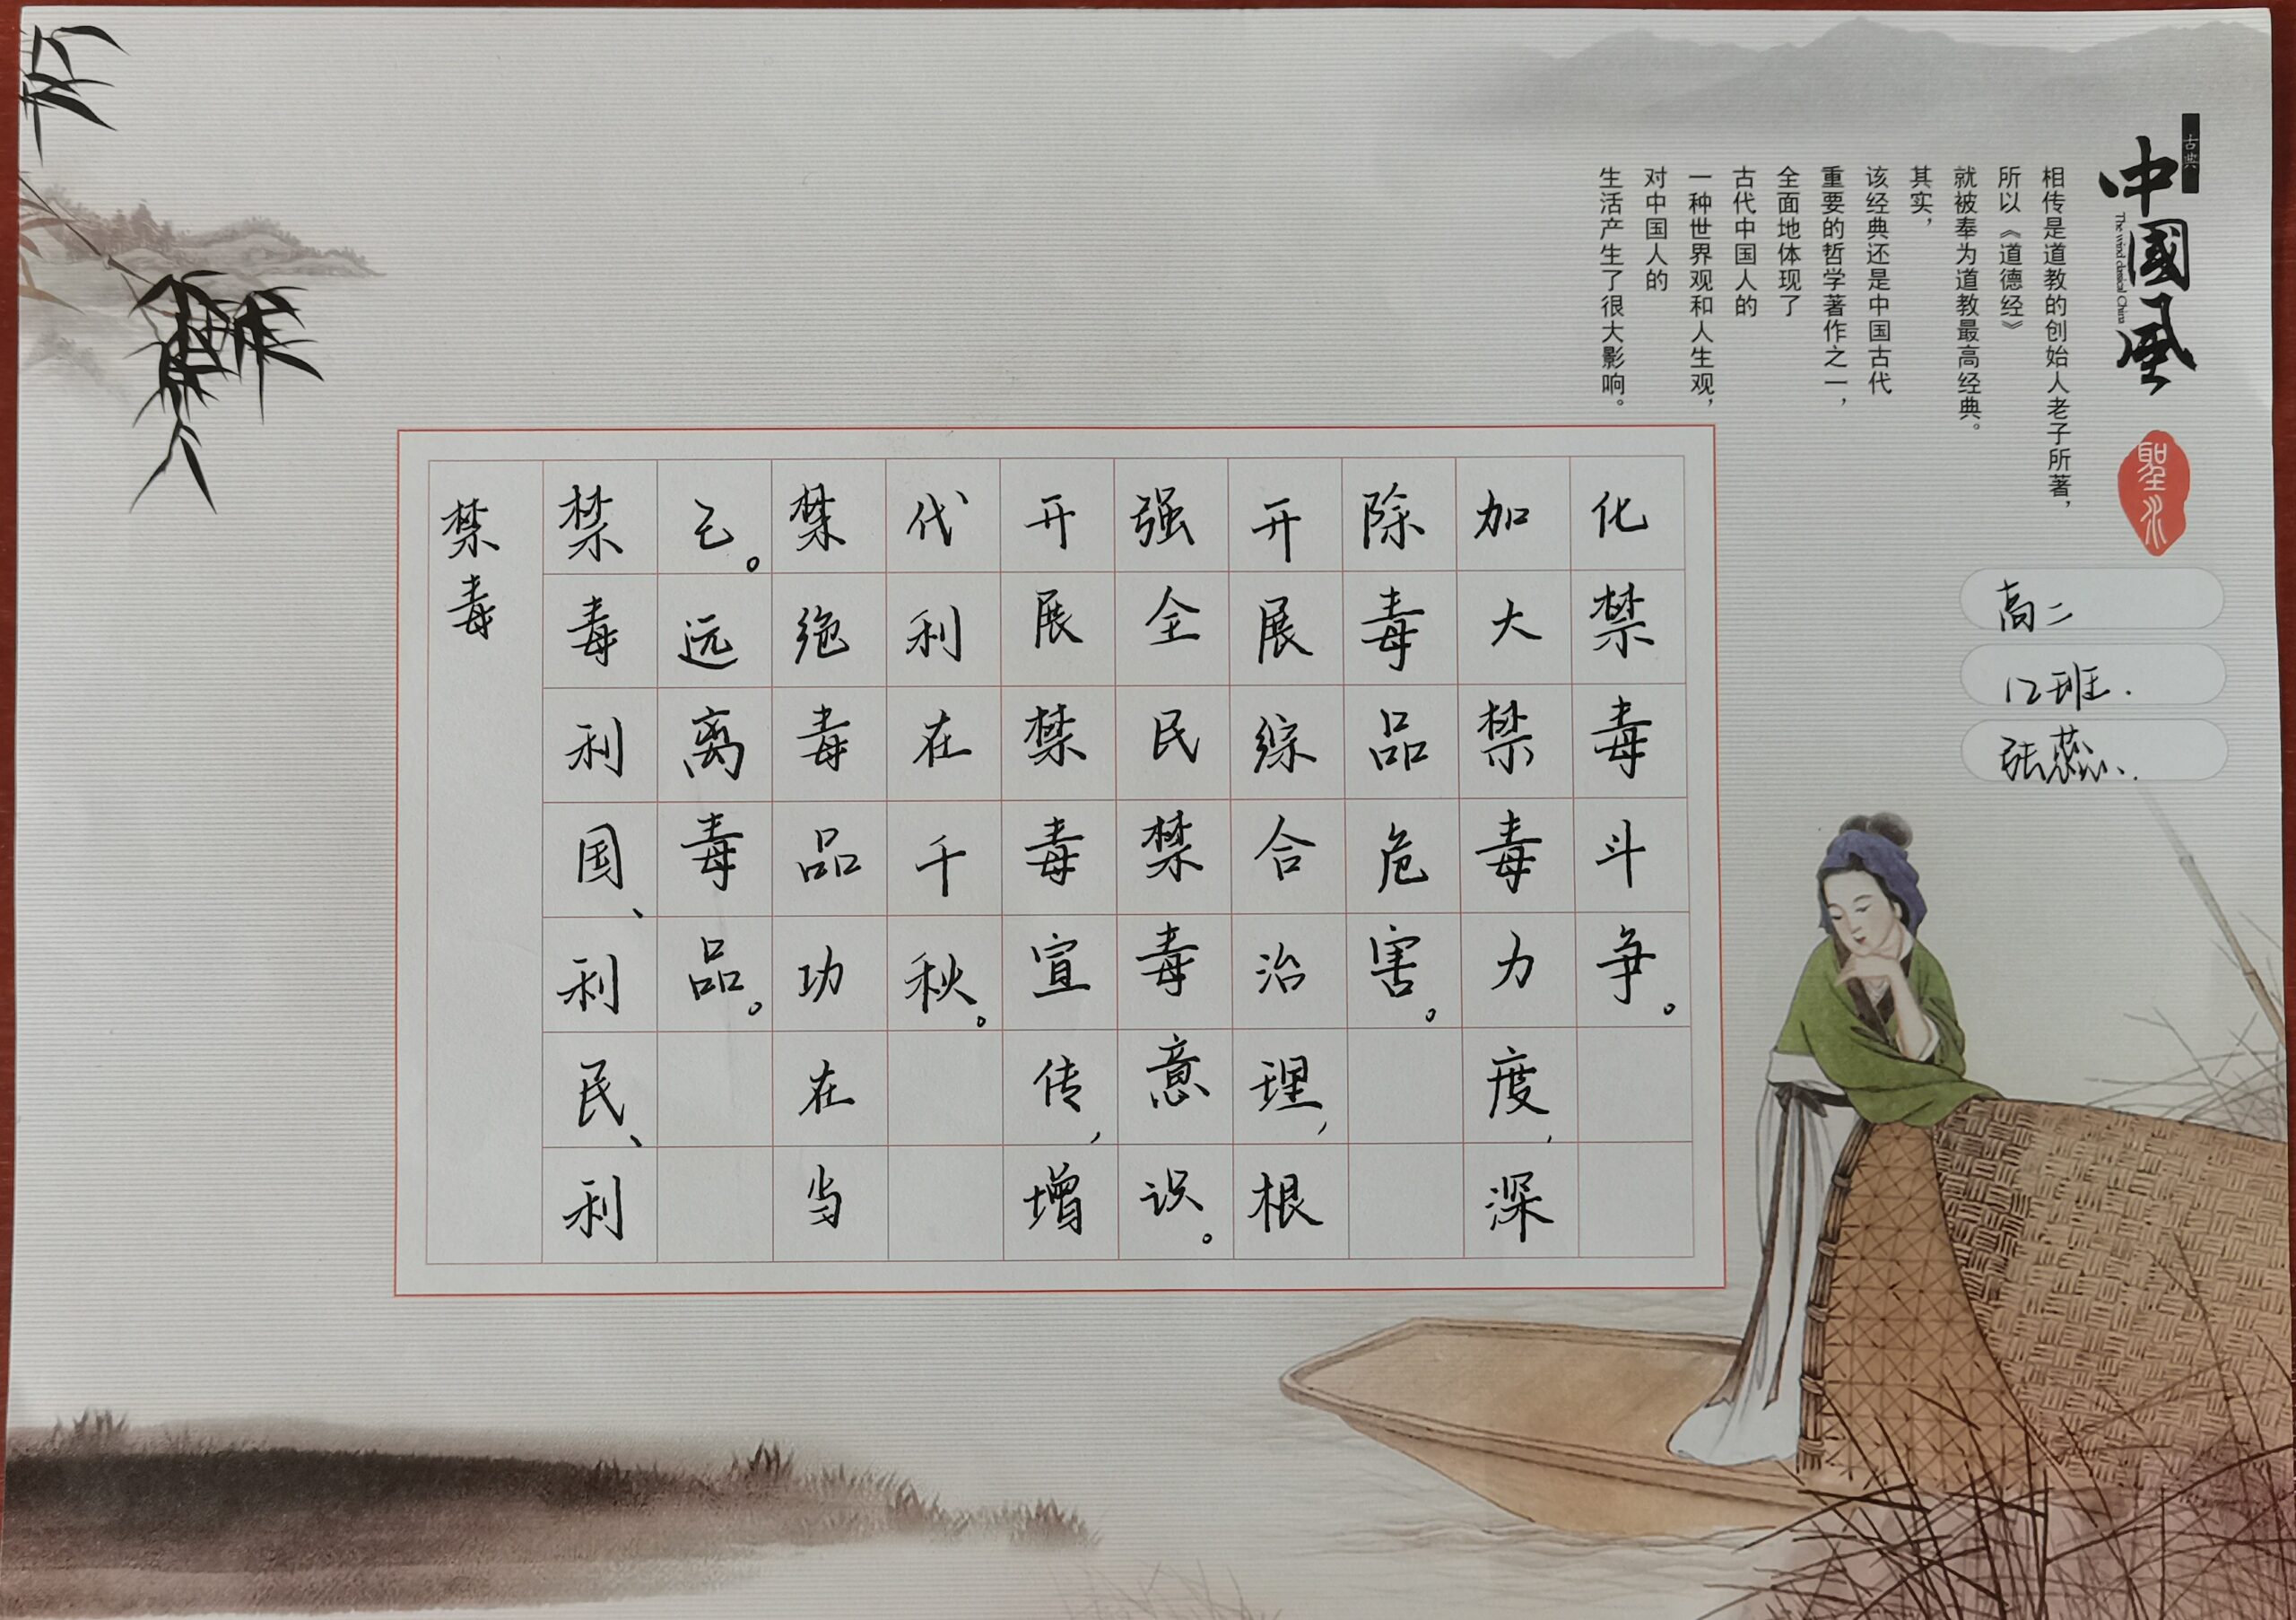 古典
中國風
相传是道教的创始人老子所著，
所以《道德经》
就被奉为道教最高经典。
其实，
该经典还是中国古代
重要的哲学著作之一，
全面地体现了
古代中国人的
一种世界观和人生观，
对中国人的
生活产生了很大影响。
高二
12班.
张蕊.
禁毒
禁毒利国、利民、利
己。远离毒品。
禁绝毒品功在当
代利在千秋。
开展禁毒宣传，增
强全民禁毒意识。
开展综合治理，根
除毒品危害。
加大禁毒力度，深
化禁毒斗争。